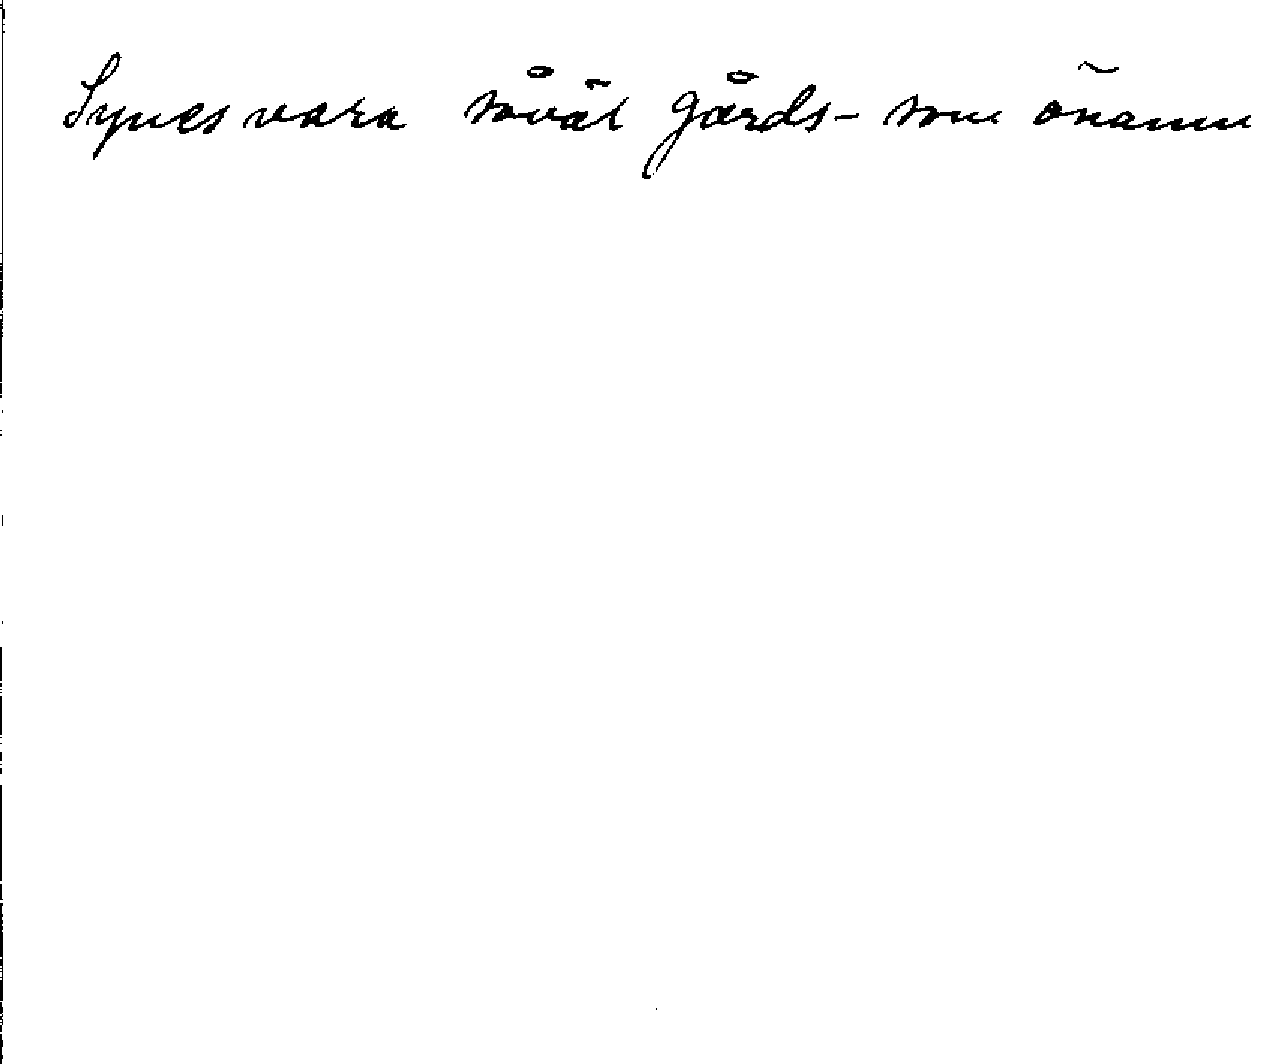 Synes vara såväl gårds- som önamn